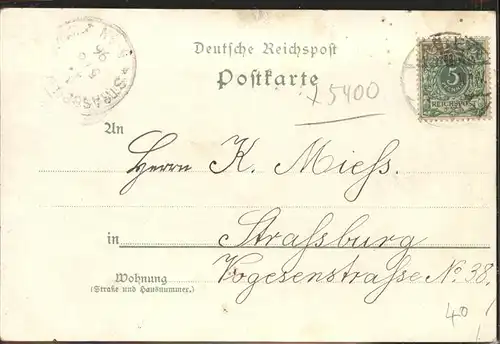 Deutsche Reichspost
Postkarte
x5400
An
Herrn K. Miess.
in Strassburg
Wohnung Vogesenstrasse No. 38.
(Straße und Hausnummer.)
5
REICHSPOST
40